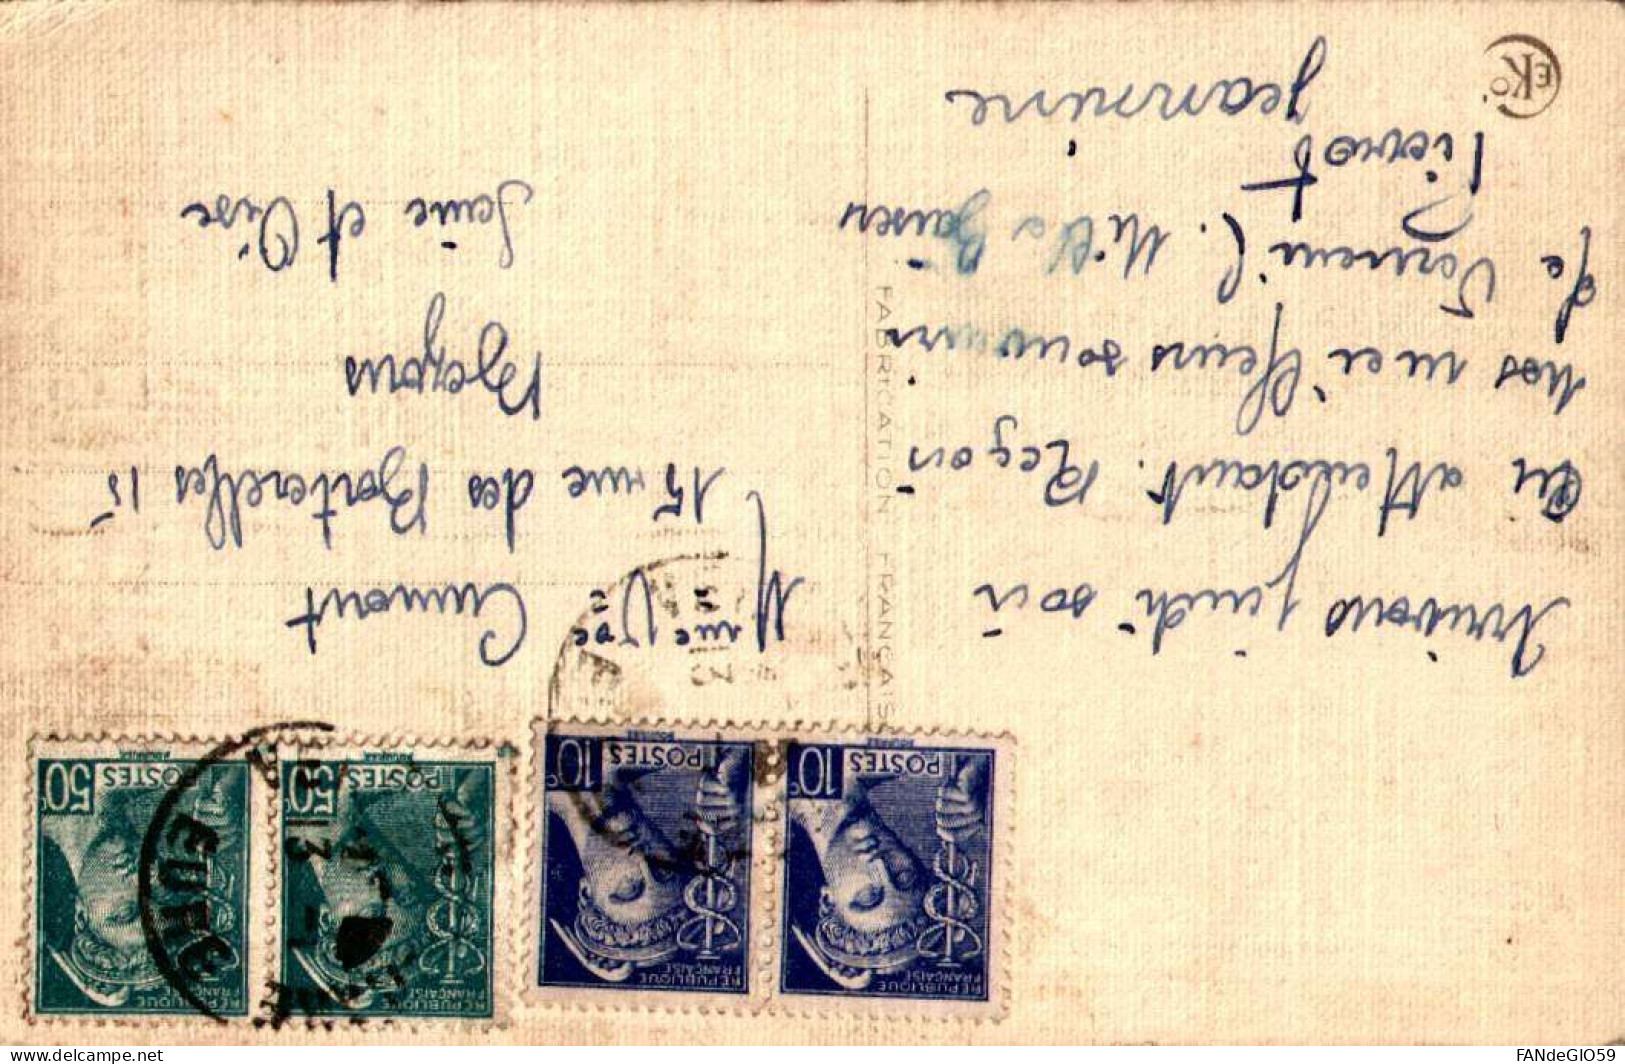 Arrivons jeudi soir
En attendant. Reçois
nos meilleurs souvenirs
de Verneuil. Mille Baisers
Pierrot
Jeannine
EKO
FABRICATION FRANÇAISE
Mme Vve Cumont
15 rue des Borterelles 15
Bezons
Seine et Oise
RÉPUBLIQUE FRANÇAISE
POSTES
10c
RÉPUBLIQUE FRANÇAISE
POSTES
10c
RÉPUBLIQUE FRANÇAISE
POSTES
50c
RÉPUBLIQUE FRANÇAISE
POSTES
50c
EURE
delcampe.net
FANdeGIO59